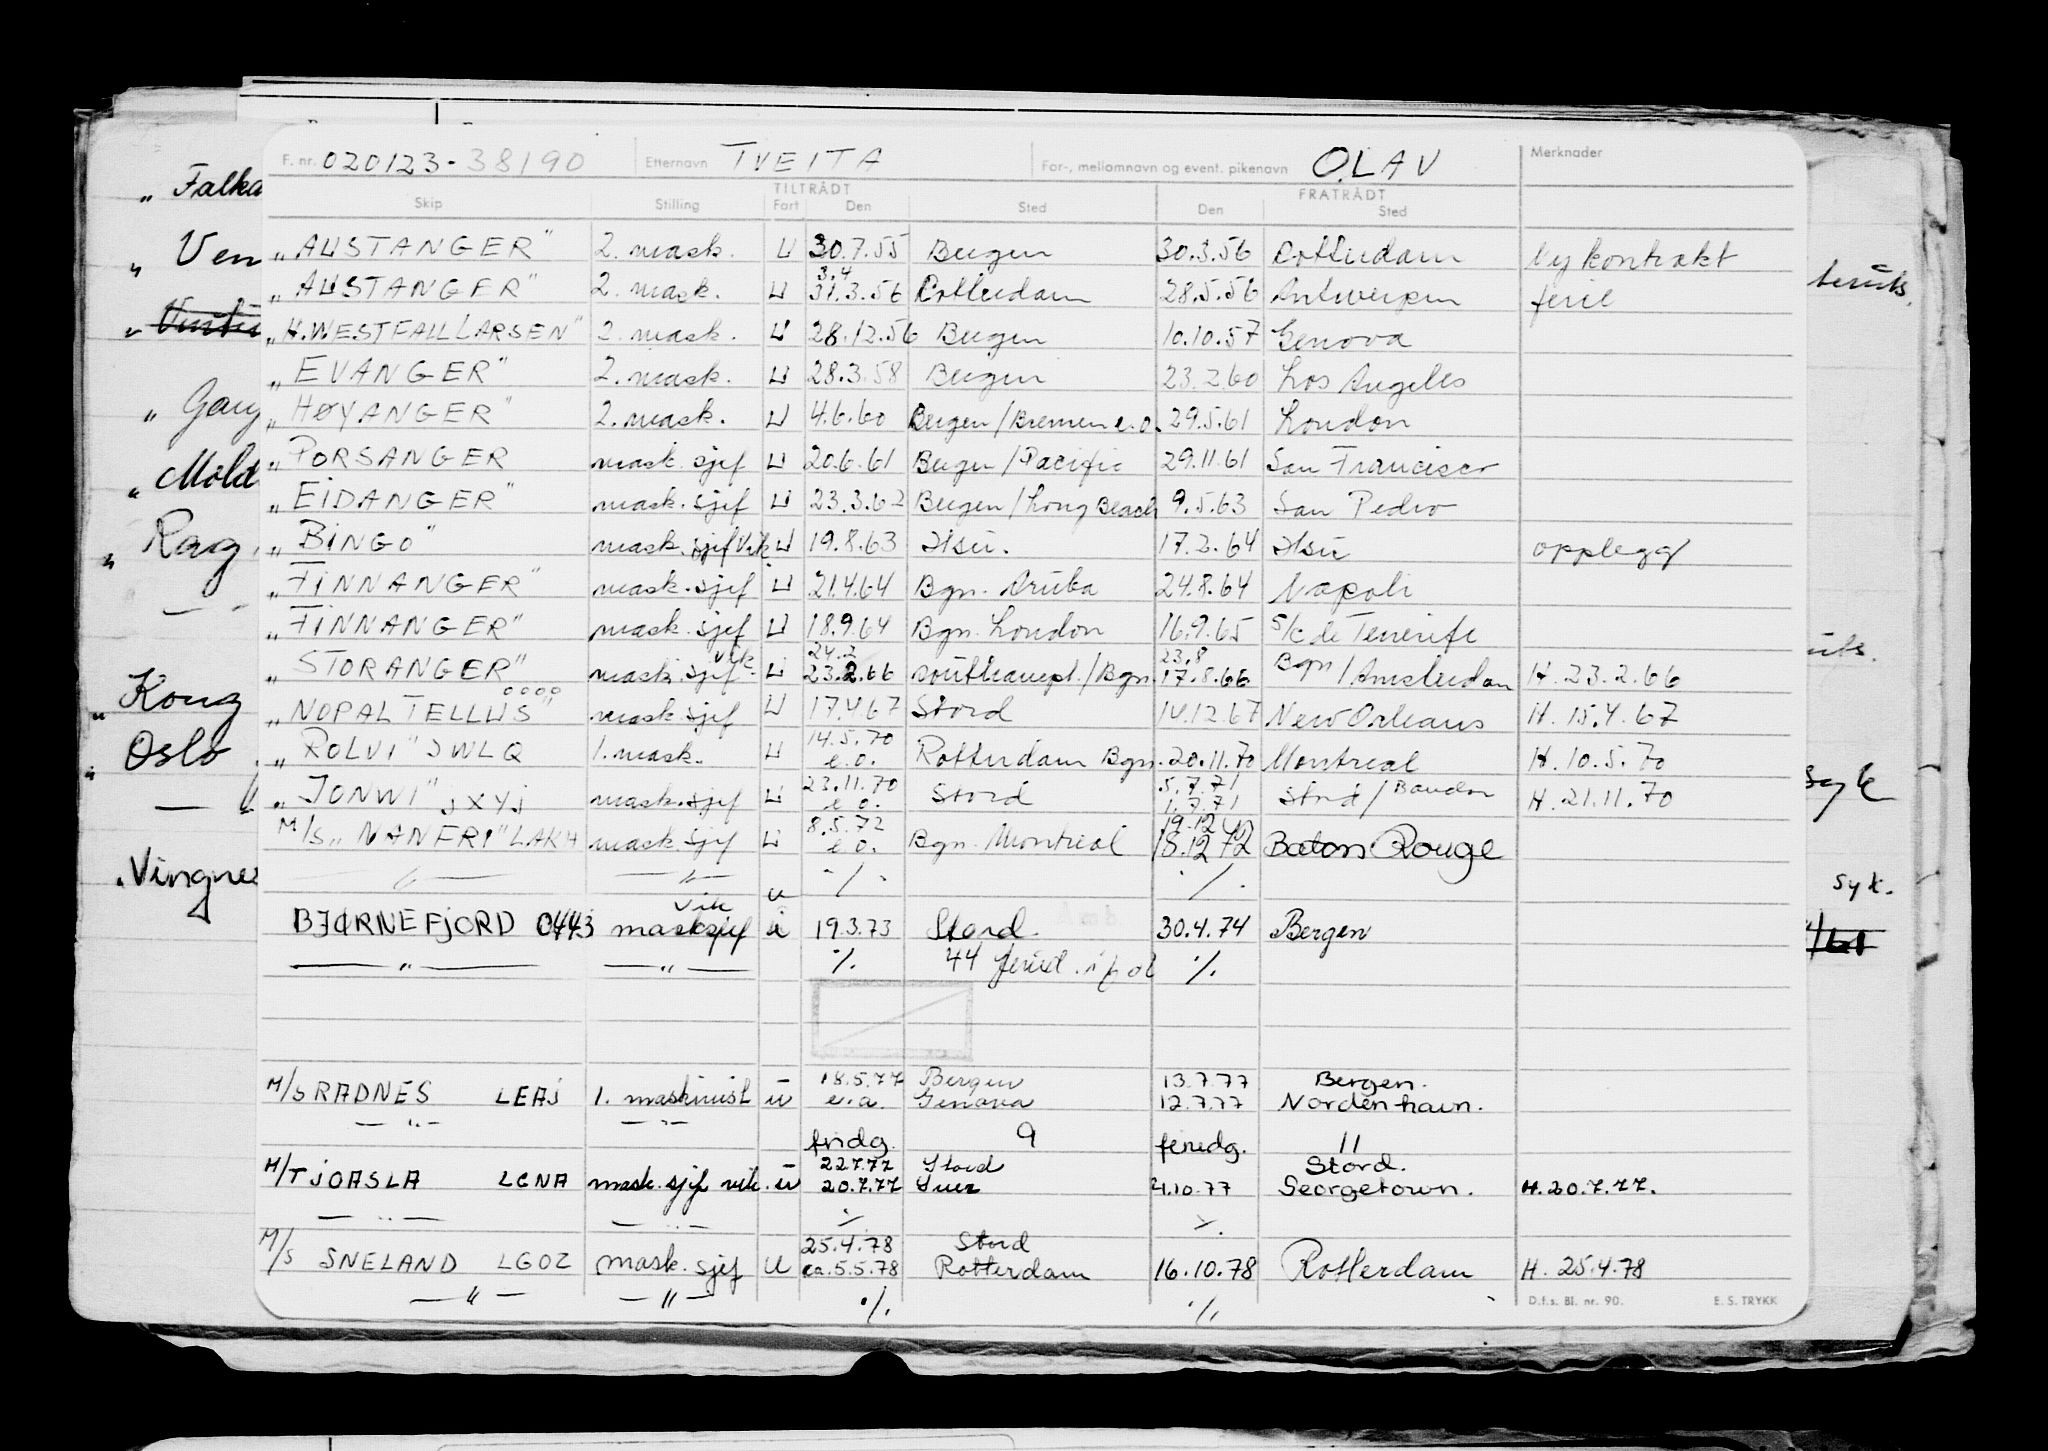 F. nr. 020123-38190 Etternavn TVEITA For-, mellomnavn og event. pikenavn OLAV Merknader
TILTRÅDT FRATRÅDT
Skip Stilling Fart Den Sted Den Sted
„AUSTANGER" 2. mask. U 30.7.55 Bergen 30.3.56 Rotterdam Ny kontrakt
3.4
„AUSTANGER" 2. mask. U 31.3.56 Rotterdam 28.5.56 Antwerpen ferie
„H. WESTFAL LARSEN" 2. mask. U 28.12.56 Bergen 10.10.57 Genova
„EVANGER" 2. mask. U 28.3.58 Bergen 23.2.60 Los Angeles
„HØYANGER" 2. mask. U 4.6.60 Bergen/Bremen e.o. 29.5.61 London
„PORSANGER mask. sjef U 20.6.61 Bergen/Pacific 29.11.61 San Francisco
„EIDANGER" mask. sjef U 23.3.62 Bergen/Long Beach 9.5.63 San Pedro
„BINGO" mask. sjef Vik U 19.8.63 17.2.64 opplegg
„FINNANGER" mask. sjef U 21.4.64 Bgn. Aruba 24.8.64 Napoli
„FINNANGER" mask. sjef U 18.9.64 Bgn. London 16.9.65 S/C de Tenerife
vik. 24.2 23.8
„STORANGER" mask. sjef U 23.2.66 Southampt./Bgn. 17.8.66 Bgn/Amsterdam H. 23.2.66
„NOPAL TELLUS" mask sjef U 17.4.67 Stord 14.12.67 New Orleans H. 15.4.67
14.5.70
„ROLVI" JWLQ 1. mask. U e.o. Rotterdam Bgn. 20.11.70 Montreal H. 10.5.70
23.11.70 5.7.71
„JONWI" JXYJ mask. sjef U e.o. Stord 1.7.71 Stord/Bandar H. 21.11.70
8.5.72 19.12
M/S „NANFRI" LAKH mask. sjef U e.o. Bgn. Montreal 18.12.72 Baton Rouge
— " — — " — ./. ./.
vik u
BJØRNEFJORD masksjef 19.3.73 Stord. 30.4.74 Bergen
— " — — " — ./. 44 ./.
18.5.77 Bergen 13.7.77 Bergen.
M/S RADNES LEAJ 1. maskinist u e.a. Genova 12.7.77 Nordenham.
— " — — " —
fridg. 9 feriedg. 11
22.7.77 Stord Stord.
M/T JOASLA LGNA mask. sjef vik. u 20.7.77 4.10.77 Georgetown. H. 20.7.77.
— " — — " — ./. ./.
25.4.78 Stord
M/S SNELAND LGOZ mask. sjef U ca. 5.5.78 Rotterdam 16.10.78 Rotterdam H. 25.4.78
— " — — " — ./. ./.
D.f.s. Bl. nr. 90. E. S. TRYKK
„ Falka
„ Ven
„ Gang
„ Mold
„ Rag
„ Kong
„ Oslo
„ Vingnes
syk
syk.